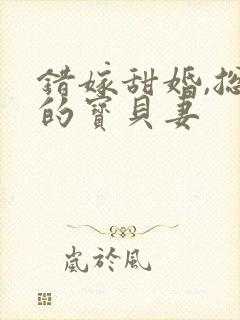 错嫁甜婚,总
的寶貝妻
嵐於風